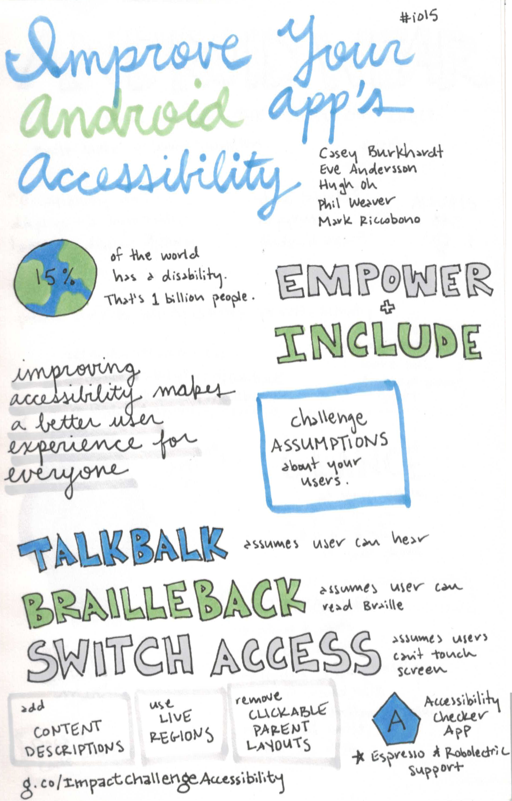 #io15
Improve Your
Android app's
Accessibility
Casey Burkhardt
Eve Andersson
Hugh Oh
Phil Weaver
Mark Riccobono
15%
of the world
has a disability.
That's 1 billion people.
EMPOWER
+
INCLUDE
improving
accessibility makes
a better user
experience for
everyone
challenge
ASSUMPTIONS
about your
users.
TALKBALK
assumes user can hear
BRAILLEBACK
assumes user can
read Braille
SWITCH ACCESS
assumes users
can't touch
screen
add
CONTENT
DESCRIPTIONS
use
LIVE
REGIONS
remove
CLICKABLE
PARENT
LAYOUTS
A
Accessibility
Checker
App
★ Espresso & Robolectric
support
g.co/ImpactChallengeAccessibility